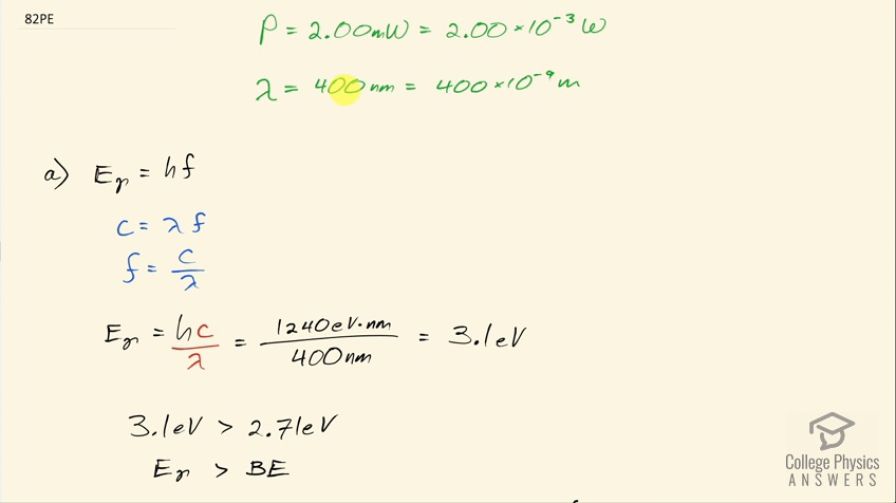 82PE
P = 2.00mW = 2.00 × 10⁻³ W
λ = 400 nm = 400 × 10⁻⁹ m
a) Eᵧ = hf
c = λ f
f = c/λ
Eᵧ = hc/λ = 1240eV·nm/400nm = 3.1eV
3.1eV > 2.71eV
Eᵧ > BE
College Physics
ANSWERS